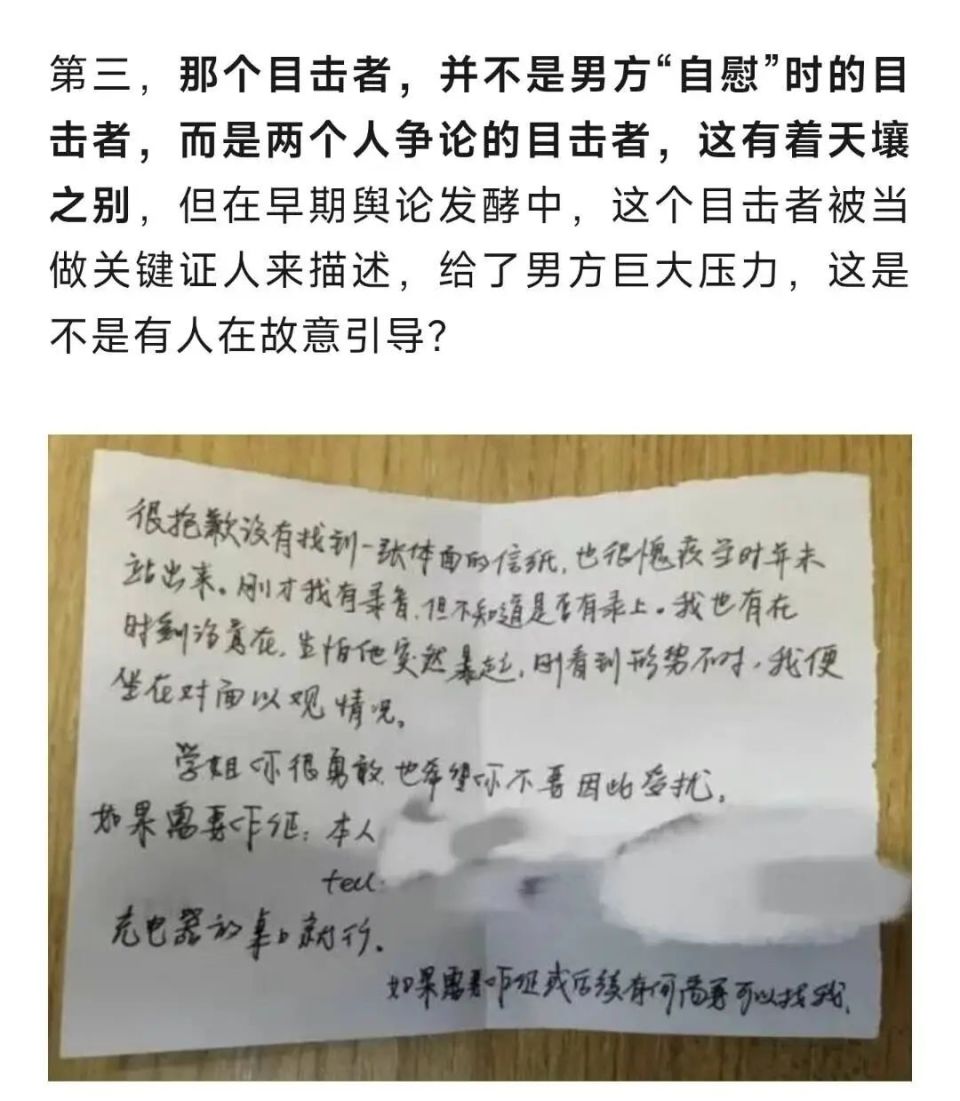 第三，那个目击者，并不是男方“自慰”时的目
击者，而是两个人争论的目击者，这有着天壤
之别，但在早期舆论发酵中，这个目击者被当
做关键证人来描述，给了男方巨大压力，这是
不是有人在故意引导？
很抱歉没有找到一张体面的信纸，也很愧疚当时并未
站出来。刚才我有录音，但不知道是否有录上。我也有在
时刻注意在，生怕他突然暴起，刚看到形势不对，我便
坐在对面以观情况。
学姐你很勇敢，也希望你不要因此受扰。
如果需要作证：本人
tel:
充电器放桌上就行。
如果需要作证或后续有何需要可以找我。